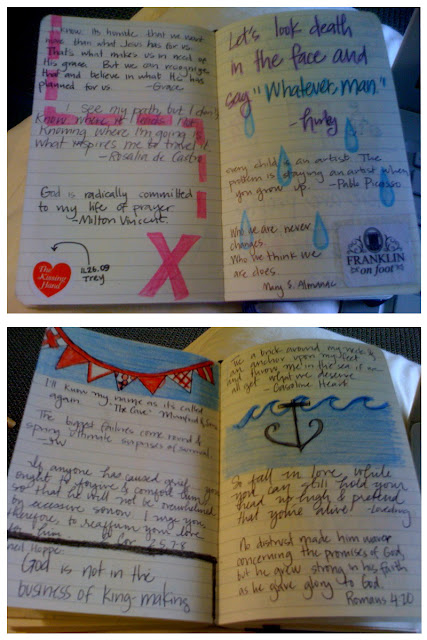 I know. Its human, that we want
more than what Jesus has for us.
That's what makes us in need of
His grace. But we can manage
that and believe in what He has
planned for us. -Grace
I see my path, but I don't
know where it leads. Not
knowing where I'm going is
what inspires me to travel it.
-Rosalia de Castro
God is radically committed
to my life of prayer.
-Milton Vincent
The
Kissing
Hand
11.26.09
Trey
X
Let's look death
in the face and
say "Whatever, man."
-Hurley
every child is an artist. The
problem is staying an artist when
you grow up. -Pablo Picasso
Who we are never
changes.
Who we think we
are does.
Mary S. Almanac
FRANKLIN
on foot
I'll know my name as it's called
again. "The Cave" Mumford & Sons
The biggest failures come round &
spring ultimate surprises of survival.
If anyone has caused grief you
ought to forgive & comfort him,
so that he will not be overwhelmed
by excessive sorrow. I urge you,
therefore, to reaffirm your love
for him. II Cor 2:5,7-8
neil Hoppe:
God is not in the
business of king-making
Tie a brick around my neck &
an anchor upon my feet
and throw me in the sea if we
all get what we deserve
So fall in love while
you can still hold your
head up high & pretend
that you're alive!
No distrust made him waver
concerning the promises of God,
but he grew strong in his faith
as he gave glory to God.
Romans 4:20